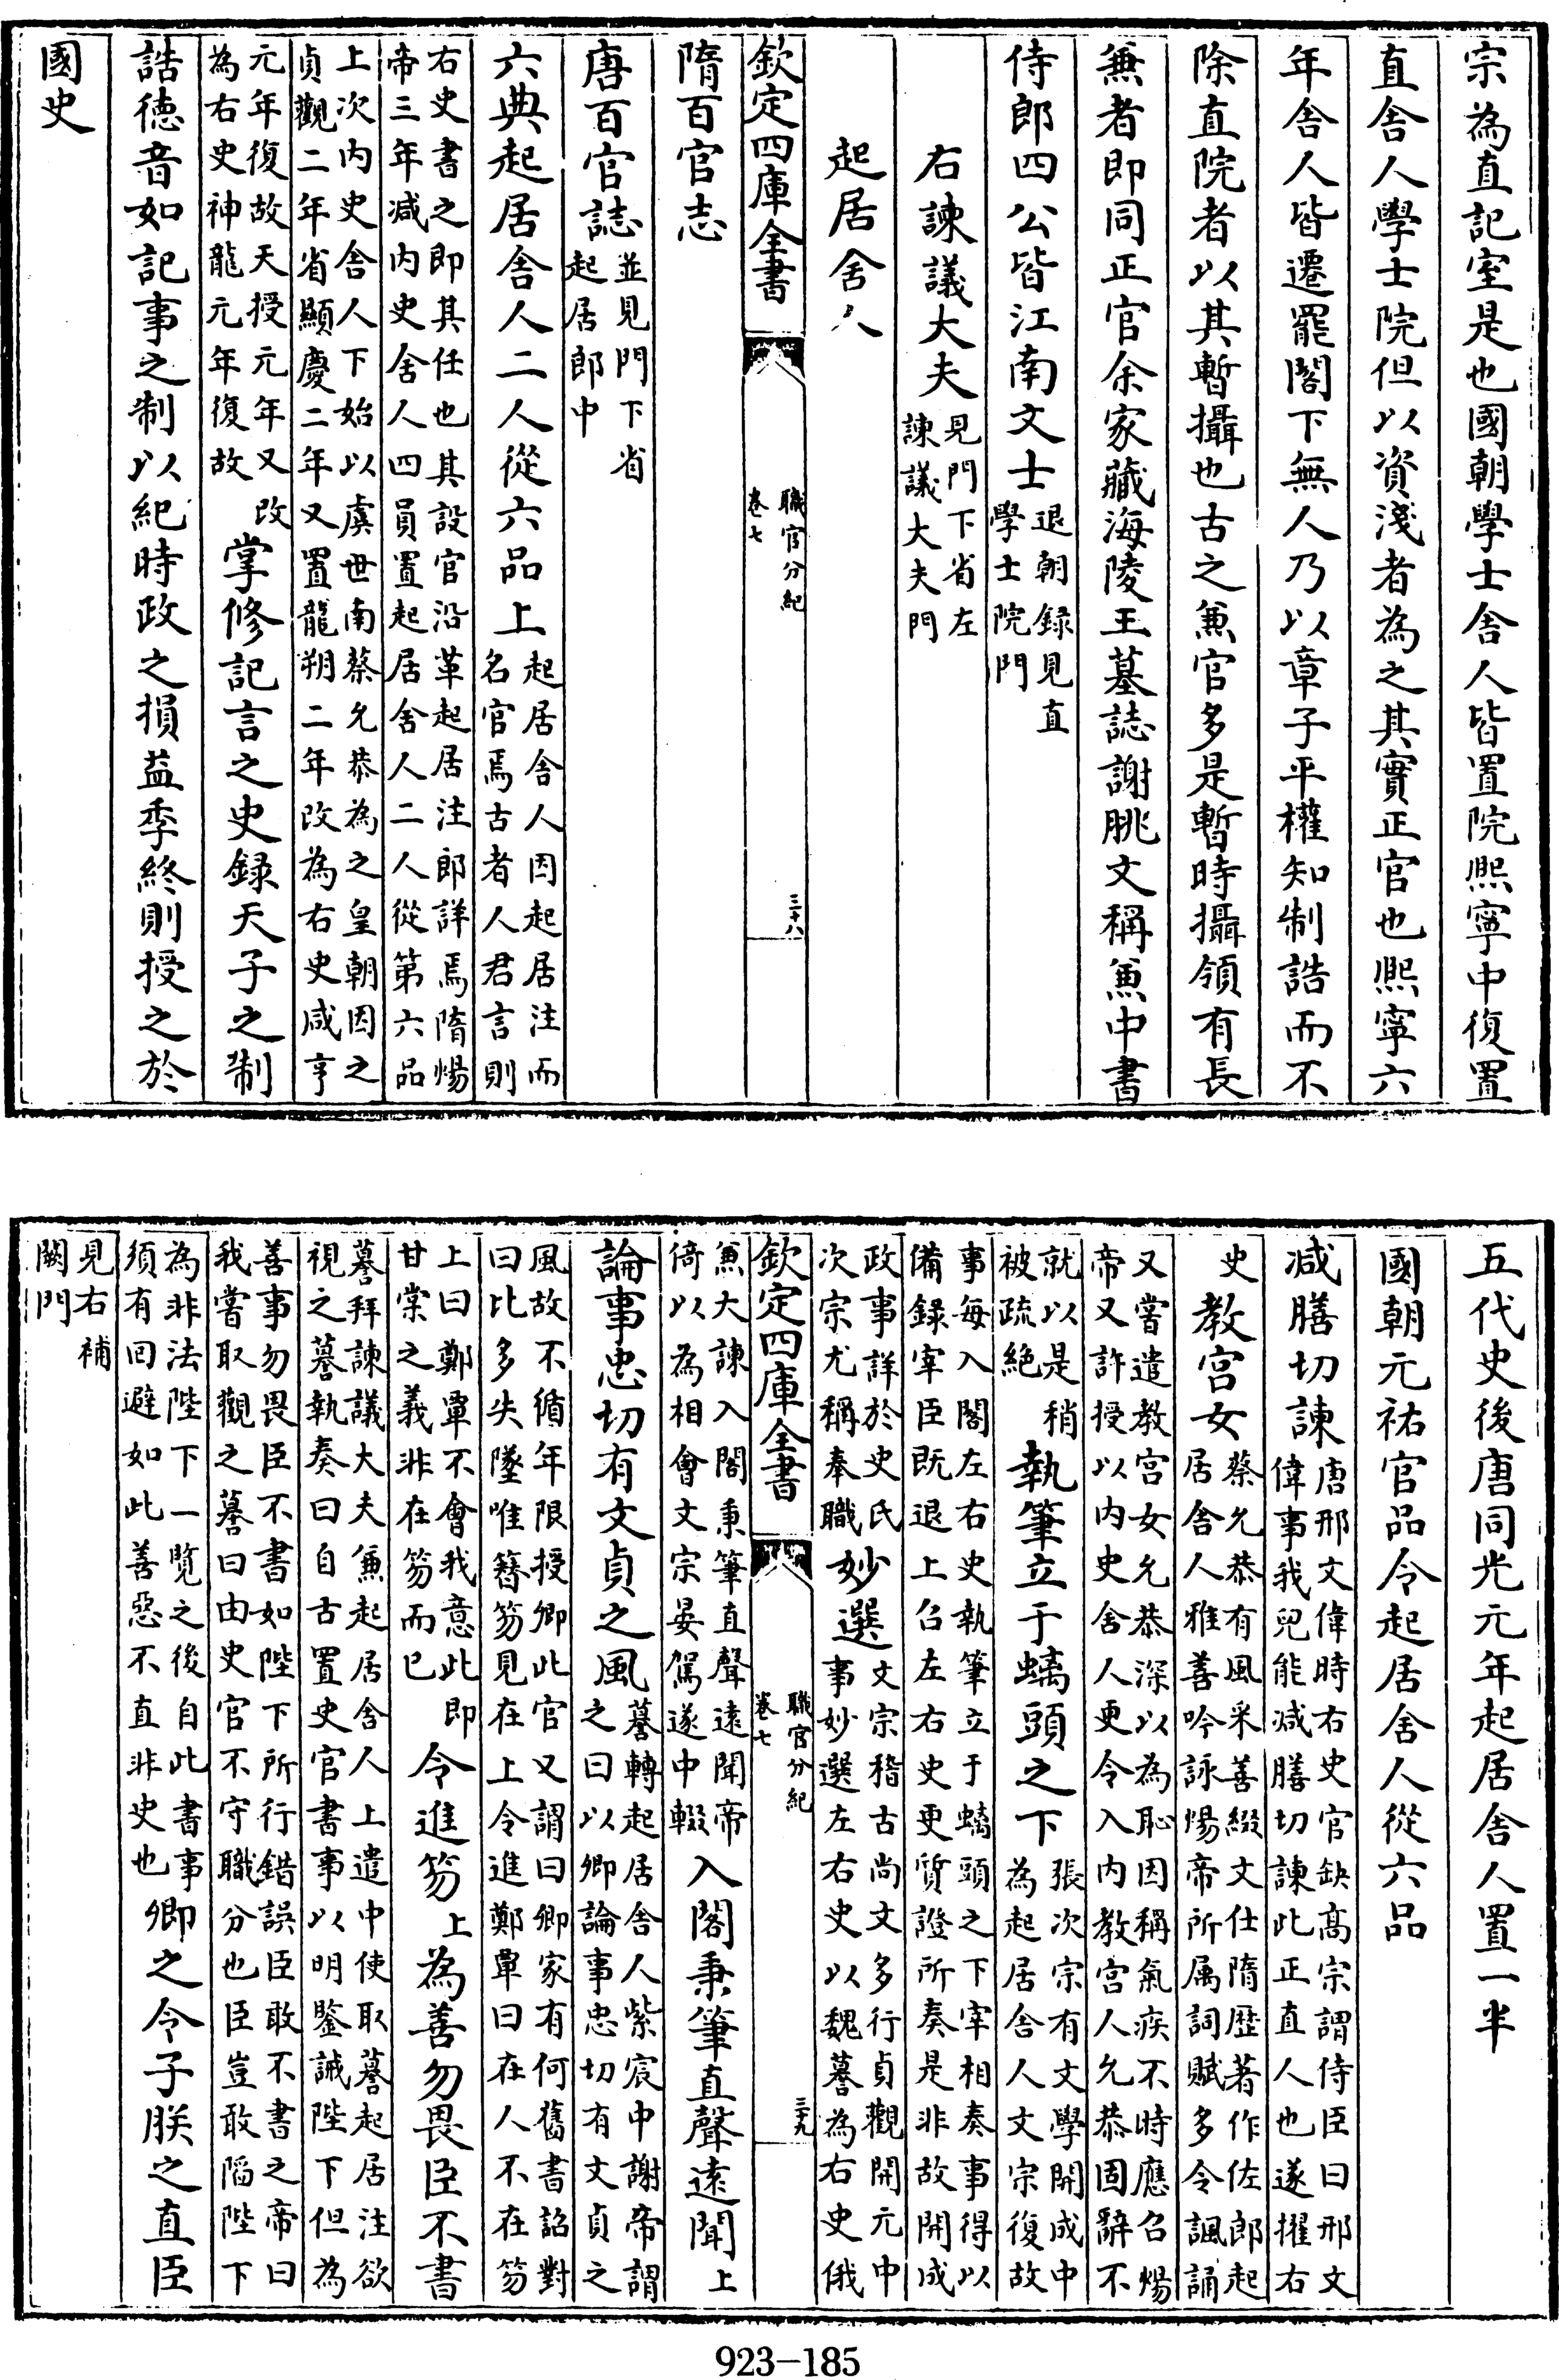 宗為直記室是也國朝學士舍人皆置院熙寧中復置
直舍人學士院但以資淺者為之其實正官也熙寧六
年舍人皆遷罷閣下無人乃以章子平權知制誥而不
除直院者以其暫攝也古之兼官多是暫時攝領有長
兼者即同正官余家藏海陵王墓誌謝朓文稱兼中書
侍郎四公皆江南文士退朝録見直
學士院門
右諫議大夫見門下省左
諫議大夫門
起居舍人
欽定四庫全書
職官分紀
卷七
三十八
隋百官志
唐百官誌並見門下省
起居郎中
六典起居舍人二人從六品上起居舍人因起居注而
名官焉古者人君言則
右史書之即其任也其設官沿革起居注郎詳焉隋煬
帝三年减内史舍人四員置起居舍人二人從第六品
上次内史舍人下始以虞世南蔡允恭為之皇朝因之
貞觀二年省顯慶二年又置龍朔二年改為右史咸亨
元年復故天授元年又改
為右史神龍元年復故
掌修記言之史録天子之制
誥德音如記事之制以紀時政之損益季終則授之於
國史
五代史後唐同光元年起居舍人置一半
國朝元祐官品令起居舍人從六品
减膳切諫唐邢文偉時右史官缺高宗謂侍臣曰邢文
偉事我兒能减膳切諫此正直人也遂擢右
史
教宫女蔡允恭有風采善綴文仕隋歷著作佐郎起
居舍人雅善吟詠煬帝所属詞賦多令諷誦
又嘗遣教宫女允恭深以為恥因稱氣疾不時應召煬
帝又許授以内史舍人更令入内教宫人允恭固辭不
就以是稍
被疏絶
執筆立于螭頭之下張次宗有文學開成中
為起居舍人文宗復故
事每入閣左右史執筆立于螭頭之下宰相奏事得以
備録宰臣既退上召左右史更質證所奏是非故開成
政事詳於史氏
次宗尤稱奉職
妙選文宗稽古尚文多行貞觀開元中
事妙選左右史以魏謩為右史俄
欽定四庫全書
職官分紀
卷七
三十九
兼大諫入閣秉筆直聲遠聞帝
倚以為相會文宗晏駕遂中輟
入閣秉筆直聲遠聞上
論事忠切有文貞之風謩轉起居舍人紫宸中謝帝謂
之曰以卿論事忠切有文貞之
風故不循年限授卿此官又謂曰卿家有何舊書詔對
曰比多失墜唯簮笏見在上令進鄭覃曰在人不在笏
上曰鄭覃不會我意此即
甘棠之義非在笏而已
令進笏上
為善勿畏臣不書
謩拜諫議大夫兼起居舍人上遣中使取謩起居注欲
視之謩執奏曰自古置史官書事以明鑒誡陛下但為
善事勿畏臣不書如陛下所行錯誤臣敢不書之帝曰
我嘗取觀之謩曰由史官不守職分也臣豈敢陷陛下
為非法陛下一覽之後自此書事
須有回避如此善惡不直非史也
卿之令子朕之直臣
見右補
闕門
923—185